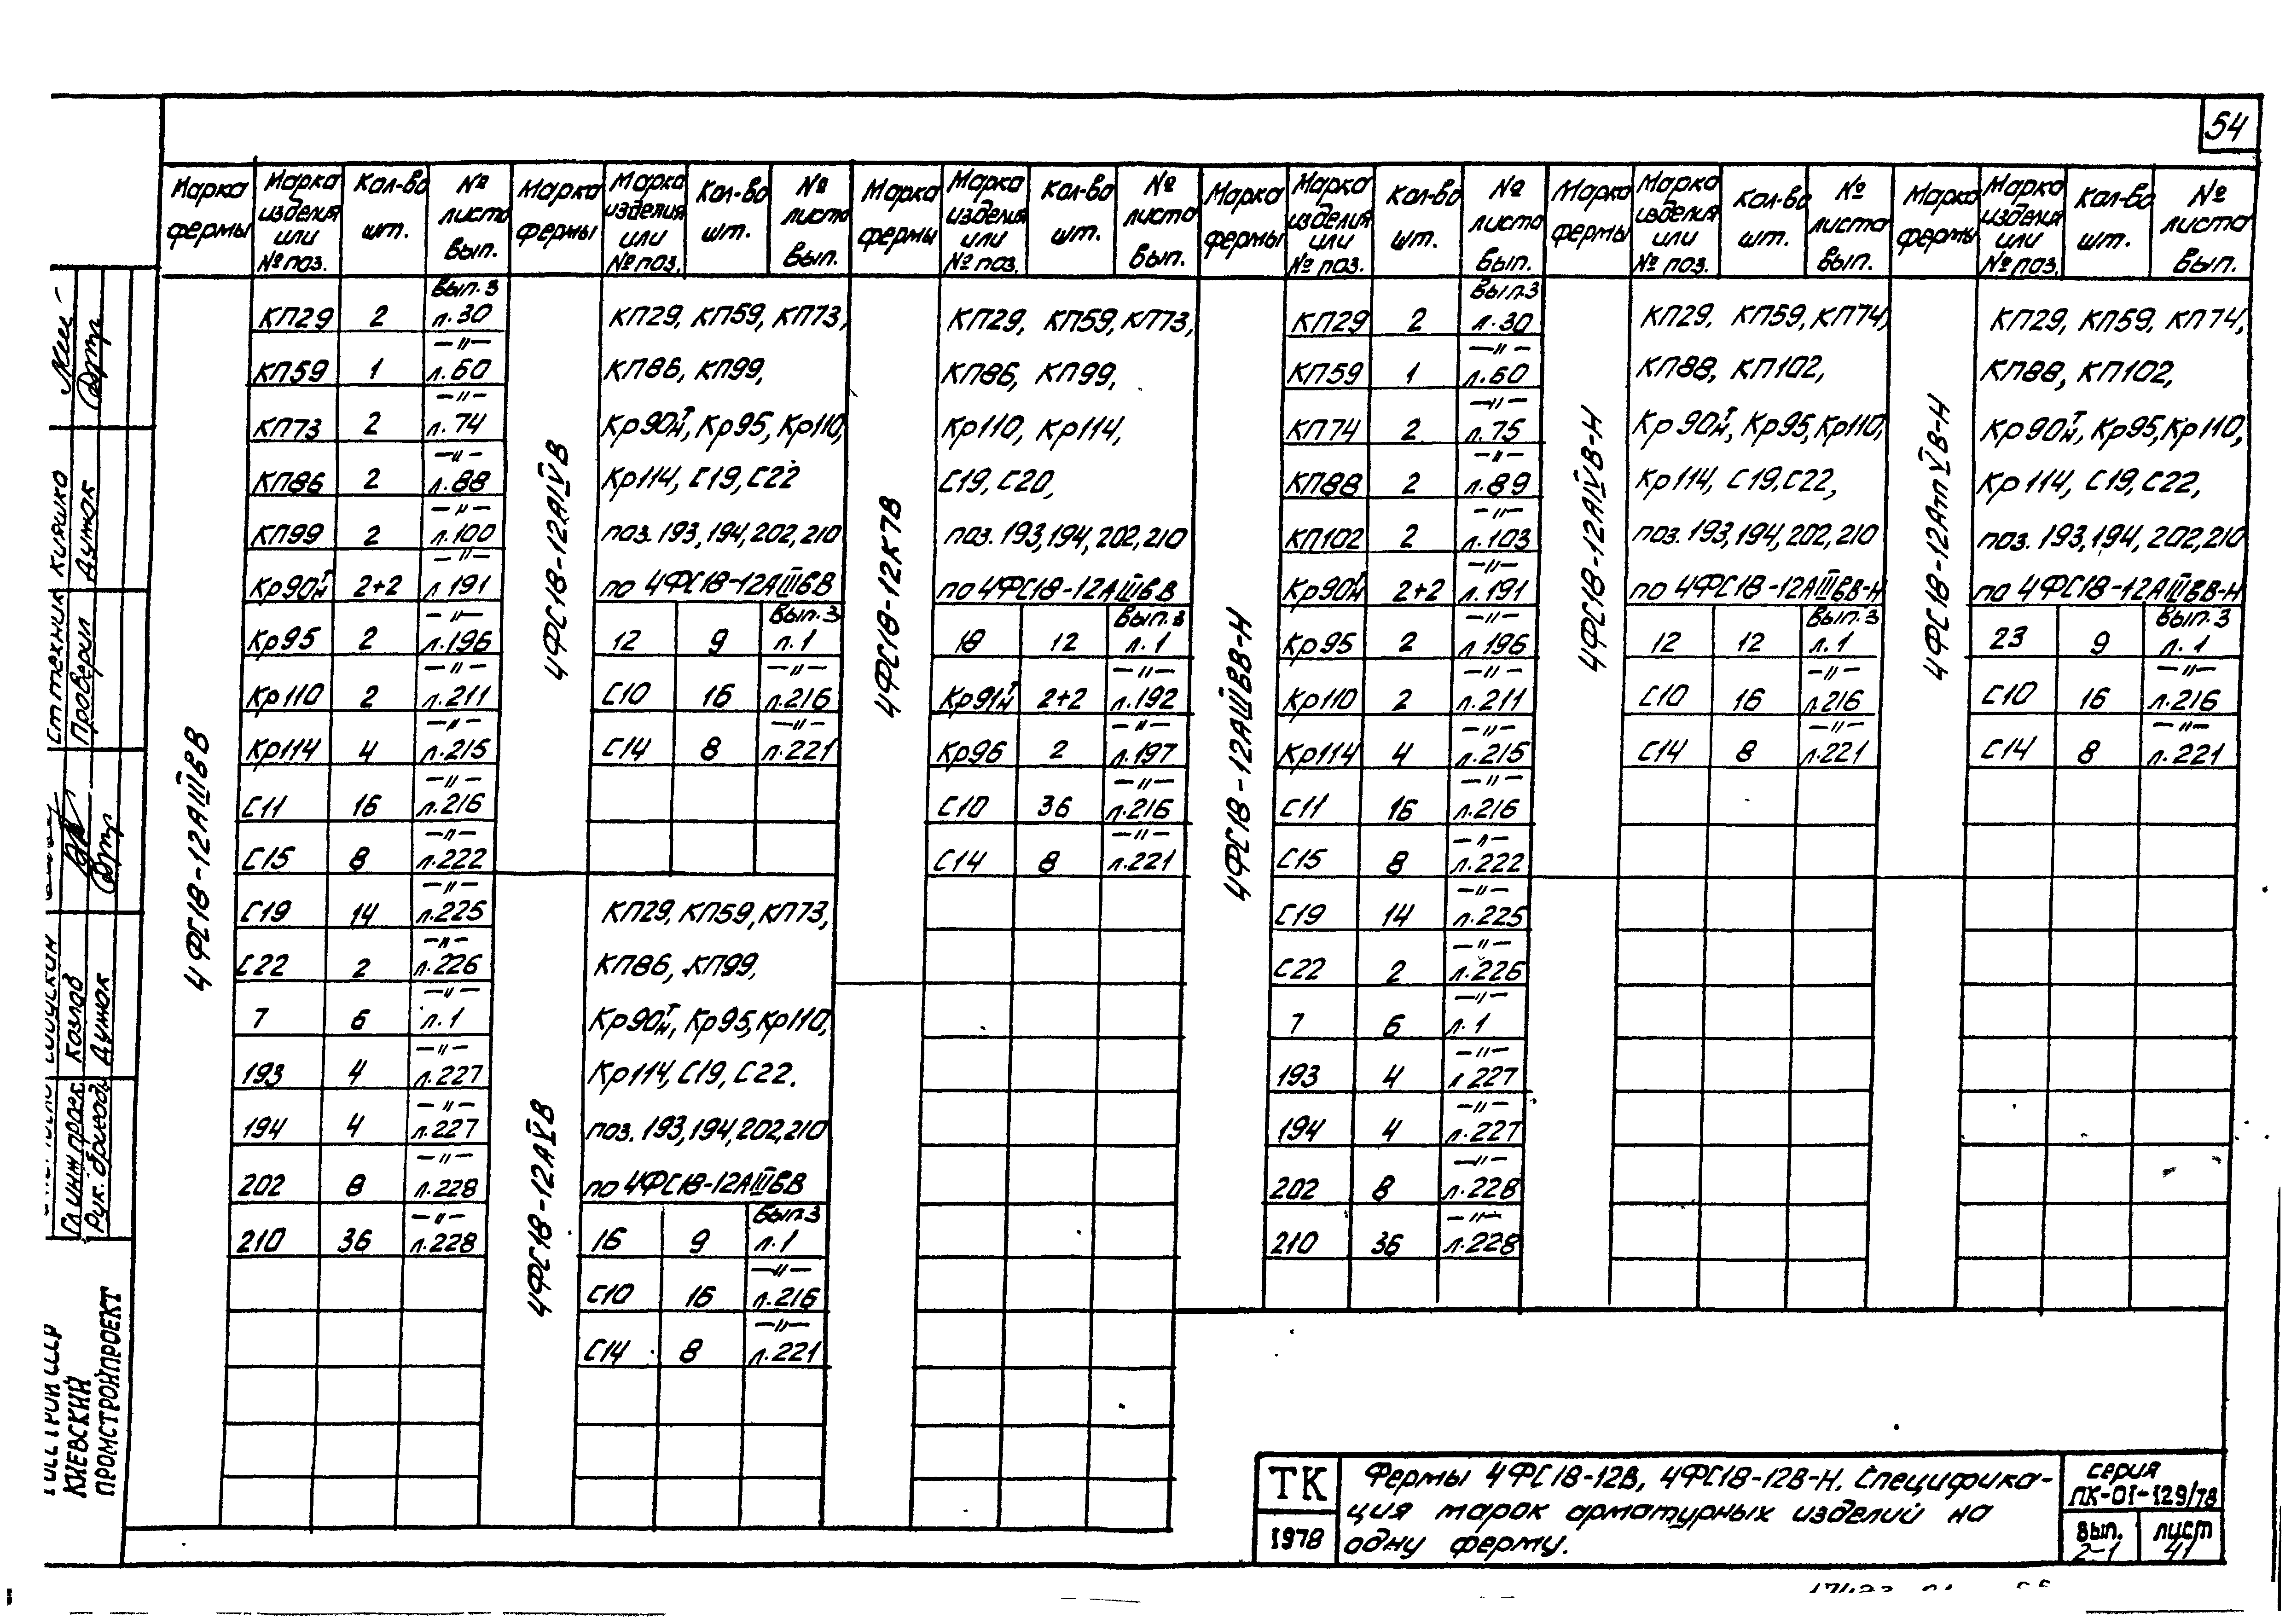 54
Марка фермы | Марка изделия или № поз. | Кол-во шт. | № листа вып.
4ФС18-12АIIIвВ
КП29 | 2 | Вып.3 л.30
КП59 | 1 | —"— л.60
КП73 | 2 | —"— л.74
КП86 | 2 | —"— л.88
КП99 | 2 | —"— л.100
Кр90т/н | 2+2 | —"— л.191
Кр95 | 2 | —"— л.196
Кр110 | 2 | —"— л.211
Кр114 | 4 | —"— л.215
С11 | 16 | —"— л.216
С15 | 8 | —"— л.222
С19 | 14 | —"— л.225
С22 | 2 | —"— л.226
7 | 6 | —"— л.1
193 | 4 | —"— л.227
194 | 4 | —"— л.227
202 | 8 | —"— л.228
210 | 36 | —"— л.228
Марка фермы | Марка изделия или № поз. | Кол-во шт. | № листа вып.
4ФС18-12АIVВ
КП29, КП59, КП73,
КП86, КП99,
Кр90т/н, Кр95, Кр110,
Кр114, С19, С22
поз. 193, 194, 202, 210
по 4ФС18-12АIIIвВ
12 | 9 | Вып.3 л.1
С10 | 16 | —"— л.216
С14 | 8 | —"— л.221
4ФС18-12АVВ
КП29, КП59, КП73,
КП86, КП99,
Кр90т/н, Кр95, Кр110,
Кр114, С19, С22.
поз. 193, 194, 202, 210
по 4ФС18-12АIIIвВ
16 | 9 | Вып.3 л.1
С10 | 16 | —"— л.216
С14 | 8 | —"— л.221
Марка фермы | Марка изделия или № поз. | Кол-во шт. | № листа вып.
4ФС18-12К7В
КП29, КП59, КП73,
КП86, КП99,
Кр110, Кр114,
С19, С20,
поз. 193, 194, 202, 210
по 4ФС18-12АIIIвВ
18 | 12 | Вып.3 л.1
Кр91т/н | 2+2 | —"— л.192
Кр96 | 2 | —"— л.197
С10 | 36 | —"— л.216
С14 | 8 | —"— л.221
Марка фермы | Марка изделия или № поз. | Кол-во шт. | № листа вып.
4ФС18-12АIIIвВ-Н
КП29 | 2 | Вып.3 л.30
КП59 | 1 | —"— л.60
КП74 | 2 | —"— л.75
КП88 | 2 | —"— л.89
КП102 | 2 | —"— л.103
Кр90т/н | 2+2 | —"— л.191
Кр95 | 2 | —"— л.196
Кр110 | 2 | —"— л.211
Кр114 | 4 | —"— л.215
С11 | 16 | —"— л.216
С15 | 8 | —"— л.222
С19 | 14 | —"— л.225
С22 | 2 | —"— л.226
7 | 6 | —"— л.1
193 | 4 | —"— л.227
194 | 4 | —"— л.227
202 | 8 | —"— л.228
210 | 36 | —"— л.228
Марка фермы | Марка изделия или № поз. | Кол-во шт. | № листа вып.
4ФС18-12АIVВ-Н
КП29, КП59, КП74,
КП88, КП102,
Кр90т/н, Кр95, Кр110,
Кр114, С19, С22,
поз. 193, 194, 202, 210
по 4ФС18-12АIIIвВ-Н
12 | 12 | Вып.3 л.1
С10 | 16 | —"— л.216
С14 | 8 | —"— л.221
Марка фермы | Марка изделия или № поз. | Кол-во шт. | № листа вып.
4ФС18-12АтпVВ-Н
КП29, КП59, КП74,
КП88, КП102,
Кр90т/н, Кр95, Кр110,
Кр114, С19, С22,
поз. 193, 194, 202, 210
по 4ФС18-12АIIIвВ-Н
23 | 9 | Вып.3 л.1
С10 | 16 | —"— л.216
С14 | 8 | —"— л.221
Ст техник Кияшко
Проверил Думок
Гл инж проек Козлов
Рук. бригады Думок
КИЕВСКИЙ
ПРОМСТРОЙПРОЕКТ
ТК
1978
Фермы 4ФС18-12В, 4ФС18-12В-Н. Специфика-
ция марок арматурных изделий на
одну ферму.
серия
ПК-01-129/78
вып. 2-1
лист 41